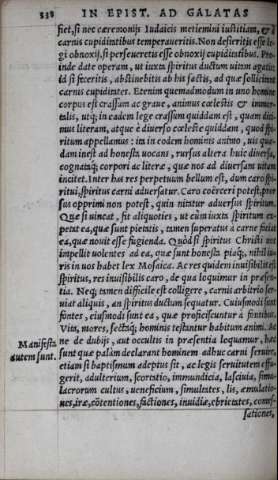 338 IN EPIST. AD GALATAS
fiet, si nec cæremonijs Iudaicis metiemini iustitiam, & à
carnis cupiditatibus temperaueritis. Non desieritis esse le-
gi obnoxij, si perseueretis esse obnoxij cupiditatibus. Pro-
inde date operam, ut iuxta spiritus ductum uitam agatis:
id si feceritis, abstinebitis ab his factis, ad quæ sollicitant
carnis cupiditates. Etenim quemadmodum in uno homine
corpus est crassum ac graue, animus cœlestis & immor-
talis, utq; in eadem lege crassum quiddam est, quam dici-
mus literam, atque è diuerso cœleste quiddam, quod spi-
ritum appellamus: ita in eodem hominis animo, uis quæ-
dam inest ad honesta uocans, rursus altera huic diuersa,
cognatáq; corpori ac literæ, quæ nos ad diuersum uitam
incitet. Inter has res perpetuum bellum est, dum caro spi-
ritui, spiritus carni aduersatur. Caro coërceri potest, pror-
sus opprimi non potest, quin nitatur aduersus spiritum.
Quæ si uincat, fit aliquoties, ut cùm iuxta spiritum ex-
petat ea, quæ sunt pietatis, tamen superatus à carne faciat
ea, quæ nouit esse fugienda. Quòd si spiritus Christi uos
impellit uolentes ad ea, quæ sunt honesta piáq;, nihil iu-
ris in uos habet lex Mosaica. Ac res quidem inuisibilis est
spiritus, res inuisibilis caro, de qua loquimur in præsen-
tia. Neq; tamen difficile est colligere, carnis arbitrio ser-
uiat aliquis, an spiritus ductum sequatur. Cuiusmodi sunt
fontes, eiusmodi sunt ea, quæ proficiscuntur à fontibus.
Vita, mores, factáq; hominis testantur habitum animi. Ac
Manifesta ne de dubijs, aut occultis in præsentia loquamur, hæc
autem sunt. sunt quæ palàm declarant hominem adhuc carni seruire,
etiam si baptismum adeptus sit, ac legis seruitutem effu-
gerit, adulterium, scortatio, immundicia, lasciuia, simu-
lacrorum cultus, ueneficium, simultates, lis, æmulatio-
nes, iræ, cōtentiones, factiones, inuidiæ, ebrietates, comes-
sationes,